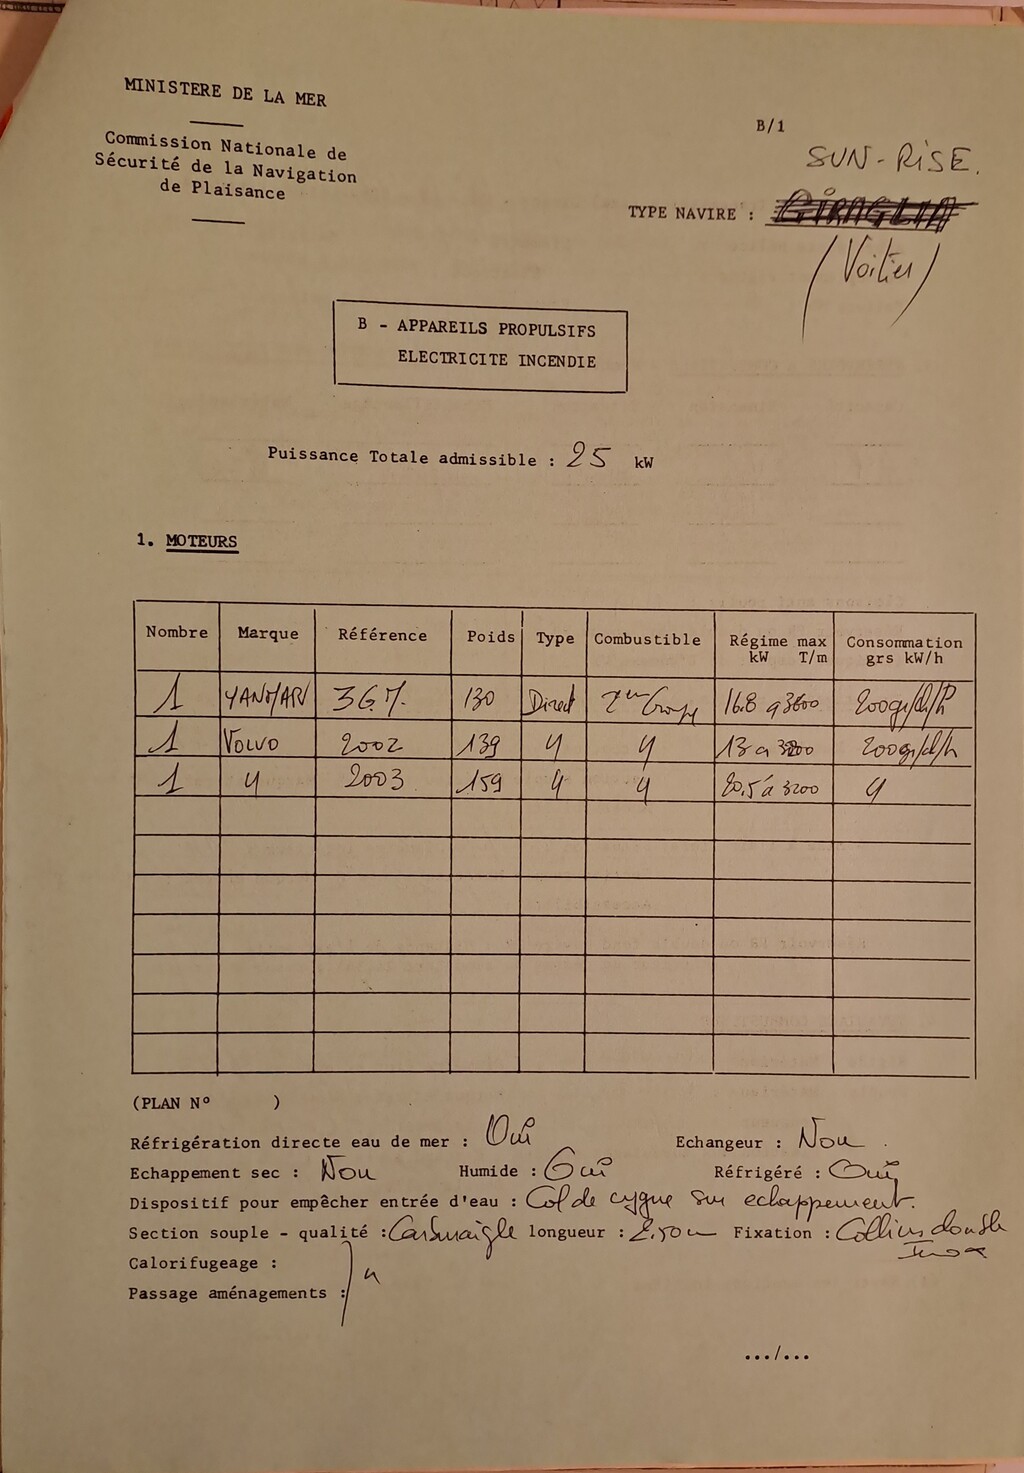 MINISTERE DE LA MER
Commission Nationale de
Sécurité de la Navigation
de Plaisance
B/1
SUN-RISE.
TYPE NAVIRE : GIRAGLIA
(Voilier)
B - APPAREILS PROPULSIFS
ELECTRICITE INCENDIE
Puissance Totale admissible : 25 kW
1. MOTEURS
Nombre Marque Référence Poids Type Combustible Régime max Consommation
kW T/m grs kW/h
1 YANMAR 3GM. 130 Direct 16.8 a 3600
1 VOLVO 2002 139 " " 13 a 3200
1 " 2003 159 " " 20,5 à 3200 "
(PLAN N° )
Réfrigération directe eau de mer : Oui Echangeur : Non.
Echappement sec : Non Humide : Oui Réfrigéré : Oui
Dispositif pour empêcher entrée d'eau : Col de cygne sur echappement.
Section souple - qualité : longueur : 2.50 m Fixation : Colliers double
Inox
Calorifugeage :
Passage aménagements :
.../...